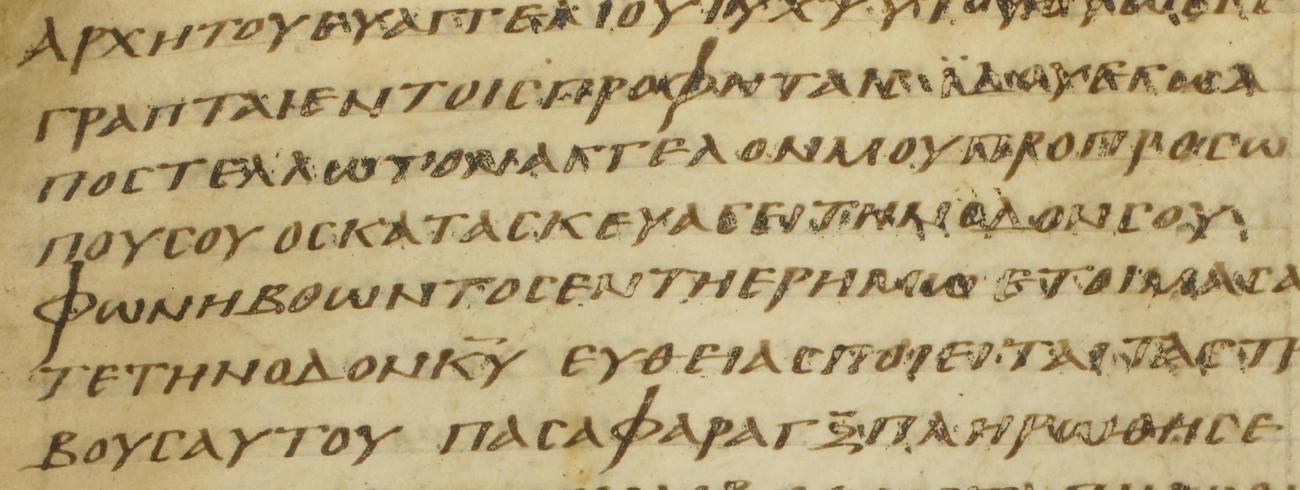 ΑΡΧΗΤΟΥΕΥΑΓΓΕΛΙΟΥΙΥΧΥΥΙΟΥ
ΓΡΑΠΤΑΙΕΝΤΟΙСΠΡΟΦΗΤΑΙСΪΔΟΥΕΓΩΑ
ΠΟСΤΕΛΛΩΤΟΝΑΓΓΕΛΟΝΜΟΥΠΡΟΠΡΟСΩ
ΠΟΥСΟΥΟСΚΑΤΑСΚΕΥΑСΕΙΤΗΝΟΔΟΝСΟΥ
ΦΩΝΗΒΟΩΝΤΟСΕΝΤΗΕΡΗΜΩ ΕΤΟΙΜΑСΑ
ΤΕΤΗΝΟΔΟΝΚ̅Υ̅ ΕΥΘΕΙΑСΠΟΙΕΙΤΑΙΤΑСΤΡΙ
ΒΟΥСΑΥΤΟΥ ΠΑСΑΦΑΡΑΓΞΠΛΗΡΩΘΗСΕ